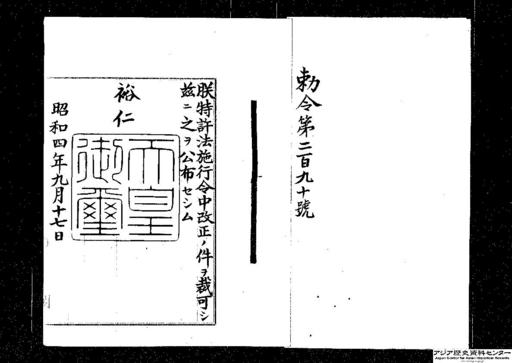 勅令第二百九十號
朕特許法施行令中改正ノ件ヲ裁可シ
茲ニ之ヲ公布セシム
裕仁
天皇御璽
昭和四年九月十七日
アジア歴史資料センター
Japan Center for Asian Historical Records